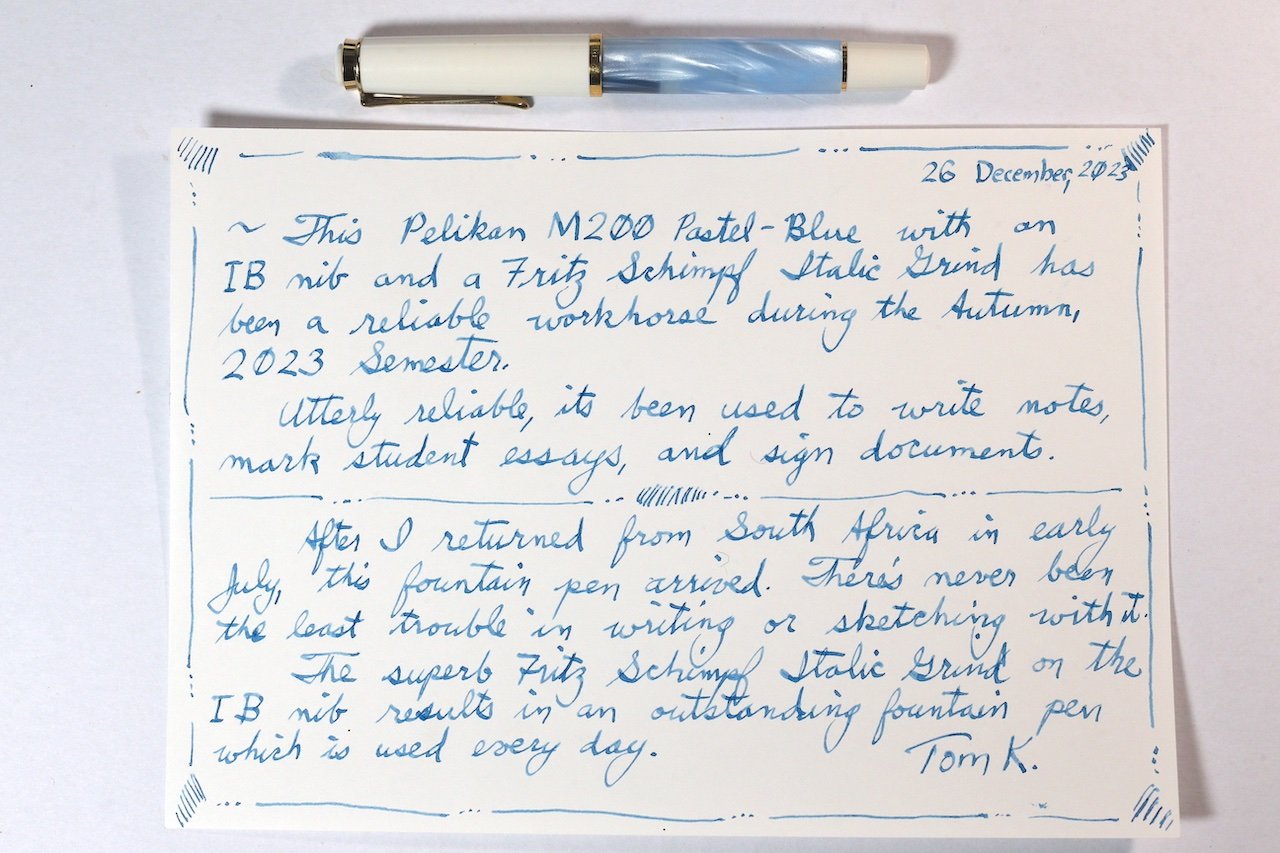 26 December, 2023
~ This Pelikan M200 Pastel-Blue with an
IB nib and a Fritz Schimpf Italic Grind has
been a reliable workhorse during the Autumn,
2023 Semester.
Utterly reliable, its been used to write notes,
mark student essays, and sign documents.
After I returned from South Africa in early
July, this fountain pen arrived. There's never been
the least trouble in writing or sketching with it.
The superb Fritz Schimpf Italic Grind on the
IB nib results in an outstanding fountain pen
which is used every day.
Tom K.